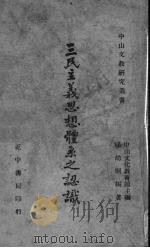 中山文教研究叢書
三民主義思想體系之認識
中山文化教育館主編
正中書局印行